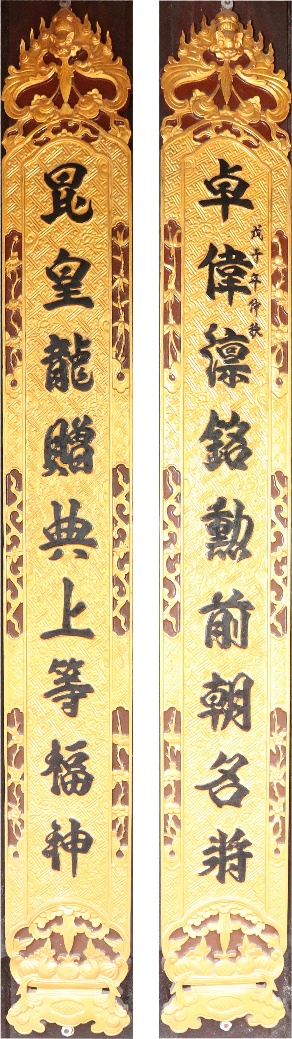 卓偉凛銘勲前朝名将
戊子年仲秋
昆皇龍贈典上等福神